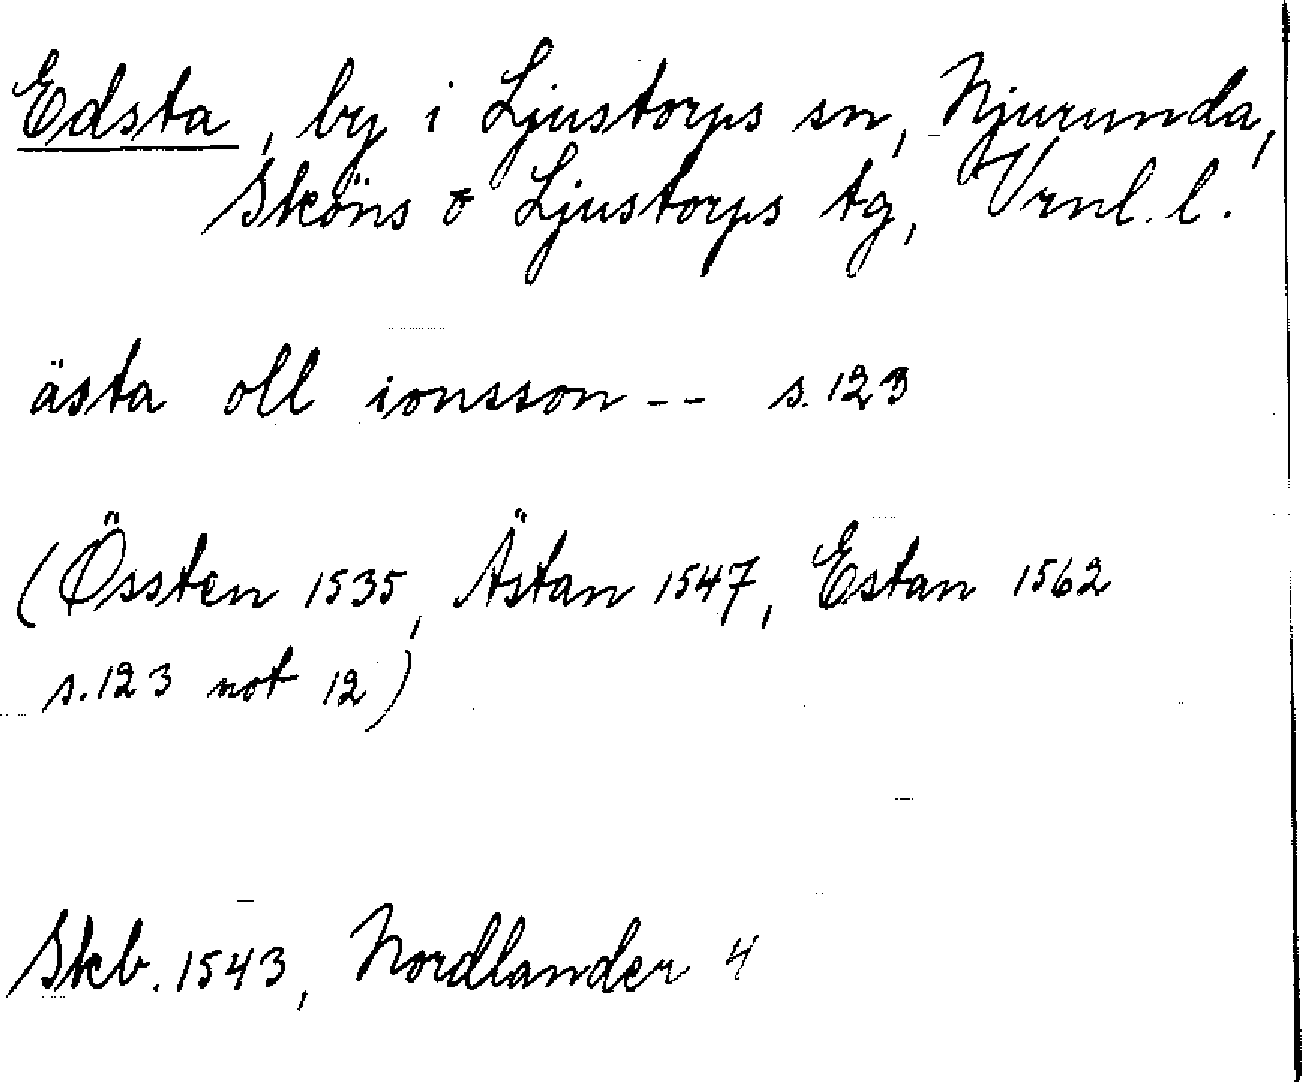 Edsta, by i Ljustorps sn, Njurunda,
Sköns o Ljustorps tg, Vrnl. l.
ästa oll ionsson -- s. 123
(Össten 1535, Ästan 1547, Estan 1562
s. 123 not 12)
Skb. 1543, Nordlander 4